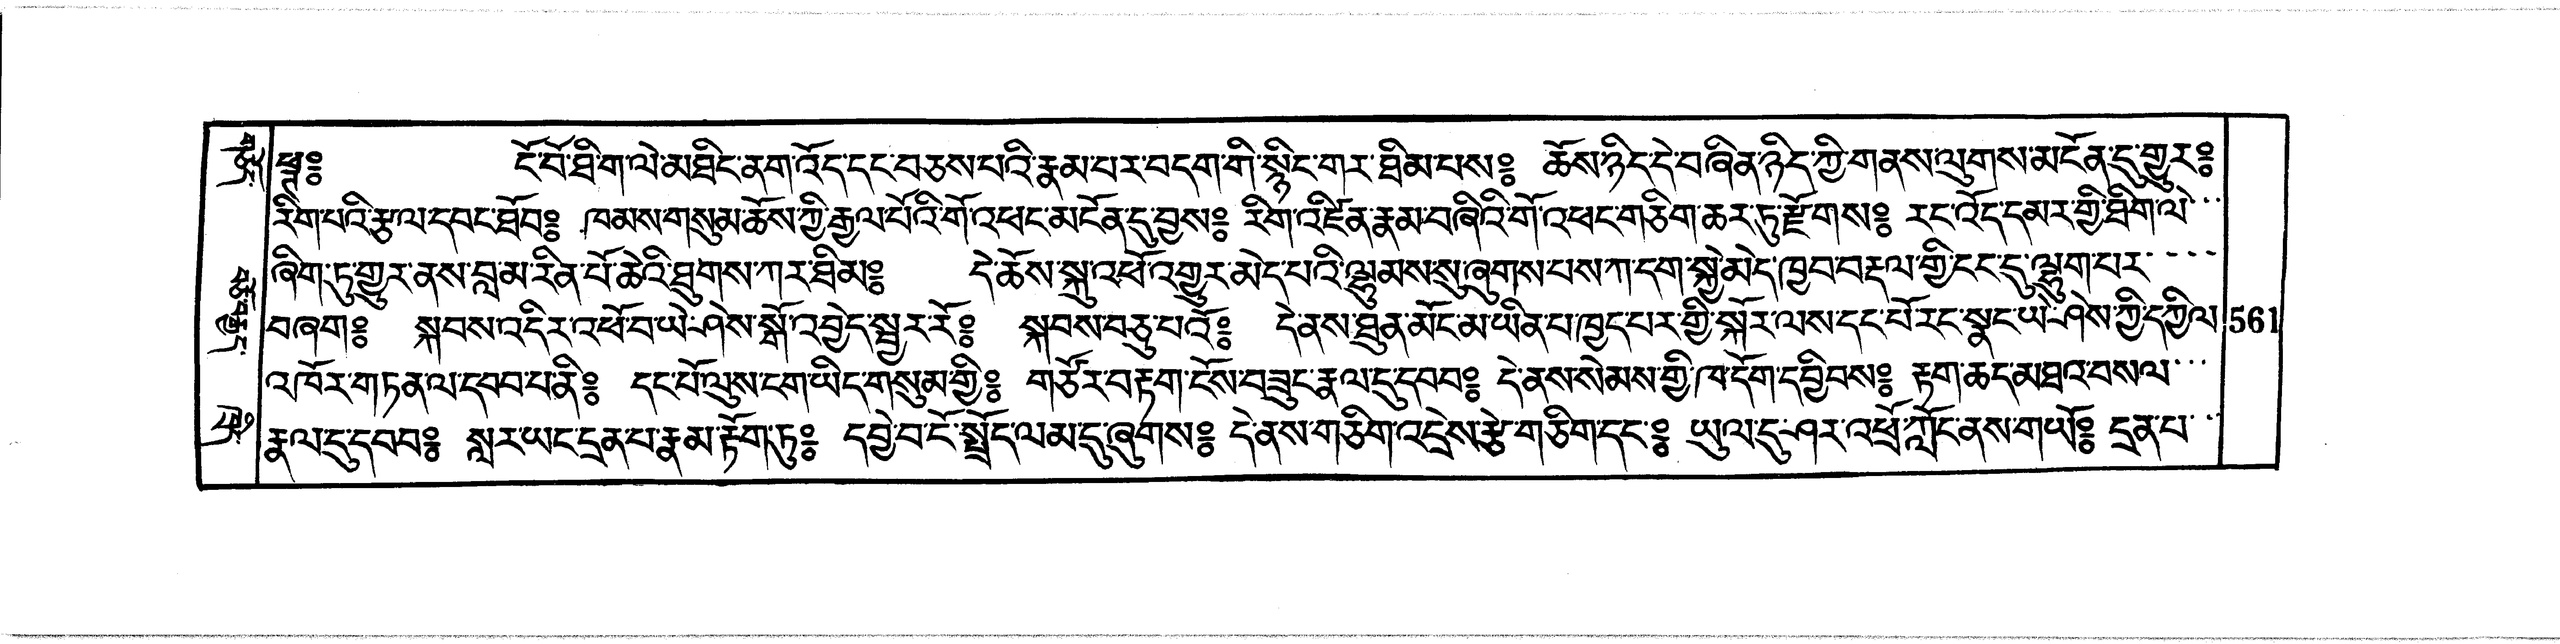 ཕྲ༔ ངོ་བོ་ཐིག་ལེ་མཐིང་ནག་འོད་དང་བཅས་པའི་རྣམ་པར་བདག་གི་སྙིང་གར་ཐིམ་པས༔ ཆོས་ཉིད་དེ་བཞིན་ཉིད་ཀྱི་གནས་ལུགས་མངོན་དུ་གྱུར༔
རིག་པའི་རྩལ་དབང་ཐོབ༔ ཁམས་གསུམ་ཆོས་ཀྱི་རྒྱལ་པོའི་གོ་འཕང་མངོན་དུ་བྱས༔ རིག་འཛིན་རྣམ་བཞིའི་གོ་འཕང་གཅིག་ཆར་ཏུ་རྫོགས༔ རང་འོད་དམར་གྱི་ཐིག་ལེ་
ཞིག་ཏུ་གྱུར་ནས་བླ་མ་རིན་པོ་ཆེའི་ཐུགས་ཀར་ཐིམ༔ དེ་ཆོས་སྐུ་འཕོ་འགྱུར་མེད་པའི་ལྷུམས་སུ་ཞུགས་པས་ཀ་དག་སྐྱེ་མེད་ཁྱབ་བརྡལ་གྱི་ངང་དུ་ལྷུག་པར་
བཞག༔ སྐབས་འདིར་འཕོ་བ་ཡེ་ཤེས་སྒོ་འབྱེད་སྦྱར་རོ༔ སྐབས་བཅུ་པའོ༔ དེ་ནས་ཐུན་མོང་མ་ཡིན་པ་ཁྱད་པར་གྱི་སྐོར་ལས་དང་པོ་རང་སྣང་ཡེ་ཤེས་ཀྱི་དཀྱིལ
561
འཁོར་གཏན་ལ་དབབ་པ་ནི༔ དང་པོ་ལུས་ངག་ཡིད་གསུམ་གྱི༔ གཙོར་བརྟག་ངོས་བཟུང་རྣལ་དུ་དབབ༔ དེ་ནས་སེམས་གྱི་ཁ་དོག་དབྱིབས༔ རྟག་ཆད་མཐའ་བསལ་
རྣལ་དུ་དབབ༔ སླར་ཡང་དྲན་པ་རྣམ་རྟོག་ཏུ༔ དབྱེ་བ་ངོ་སྤྲོད་ལམ་དུ་ཞུགས༔ དེ་ནས་གཅིག་འདྲེས་རྩེ་གཅིག་དང་༔ ཡུལ་དུ་ཤར་འཕྲོ་ཀློང་ནས་གཡོ༔ དྲན་པ་